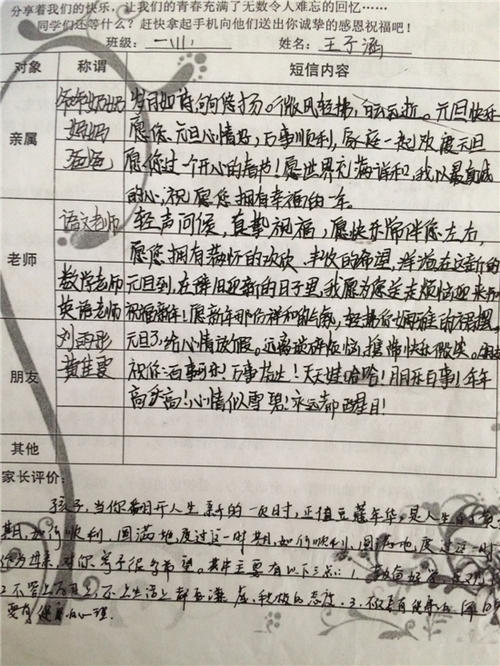 分享着我们的快乐，让我们的青春充满了无数令人难忘的回忆……
同学们还等什么？赶快拿起手机向他们送出你诚挚的感恩祝福吧！
班级： 姓名：王子涵
对象 称谓 短信内容
亲属
爷爷奶奶 岁月如诗句句悠扬。微风轻拂，白云逝。元旦快乐
妈妈 愿您元旦心情好，万事顺利，家庭一起欢度元旦
爸爸 愿您过一个开心的春节！愿世界充满祥和，我以最真诚
的心，祝愿您拥有幸福的一年。
老师
语文老师 轻声问候，真挚祝福，愿快乐常伴您左右，
愿您拥有满怀的欢欣、丰收的希望，洋溢在这新的
数学老师 元旦到，在辞旧迎新的日子里，我愿为您送走烦恼迎来
英语老师 祝福新年！愿新年那份祥和的
朋友
刘雨彤 元旦了，给心情放假。远离烦恼，携带快乐
黄佳雯 祝你：百事可乐！万事芬达！天天娃哈哈！月月乐百事！年年
高乐高！心情似雪碧！永远都醒目！
其他
家长评价：
孩子，当你翻开人生新的一页时，正值豆蔻年华，是人生的
期，如何顺利、圆满地度过这一时期，如何顺利、圆满地度过这一时
对你寄予很多希望。其中主要有以下三点：1、
2、不管上 还是生活上都要谦虚，积极的态度。3、
要有健康的心理。